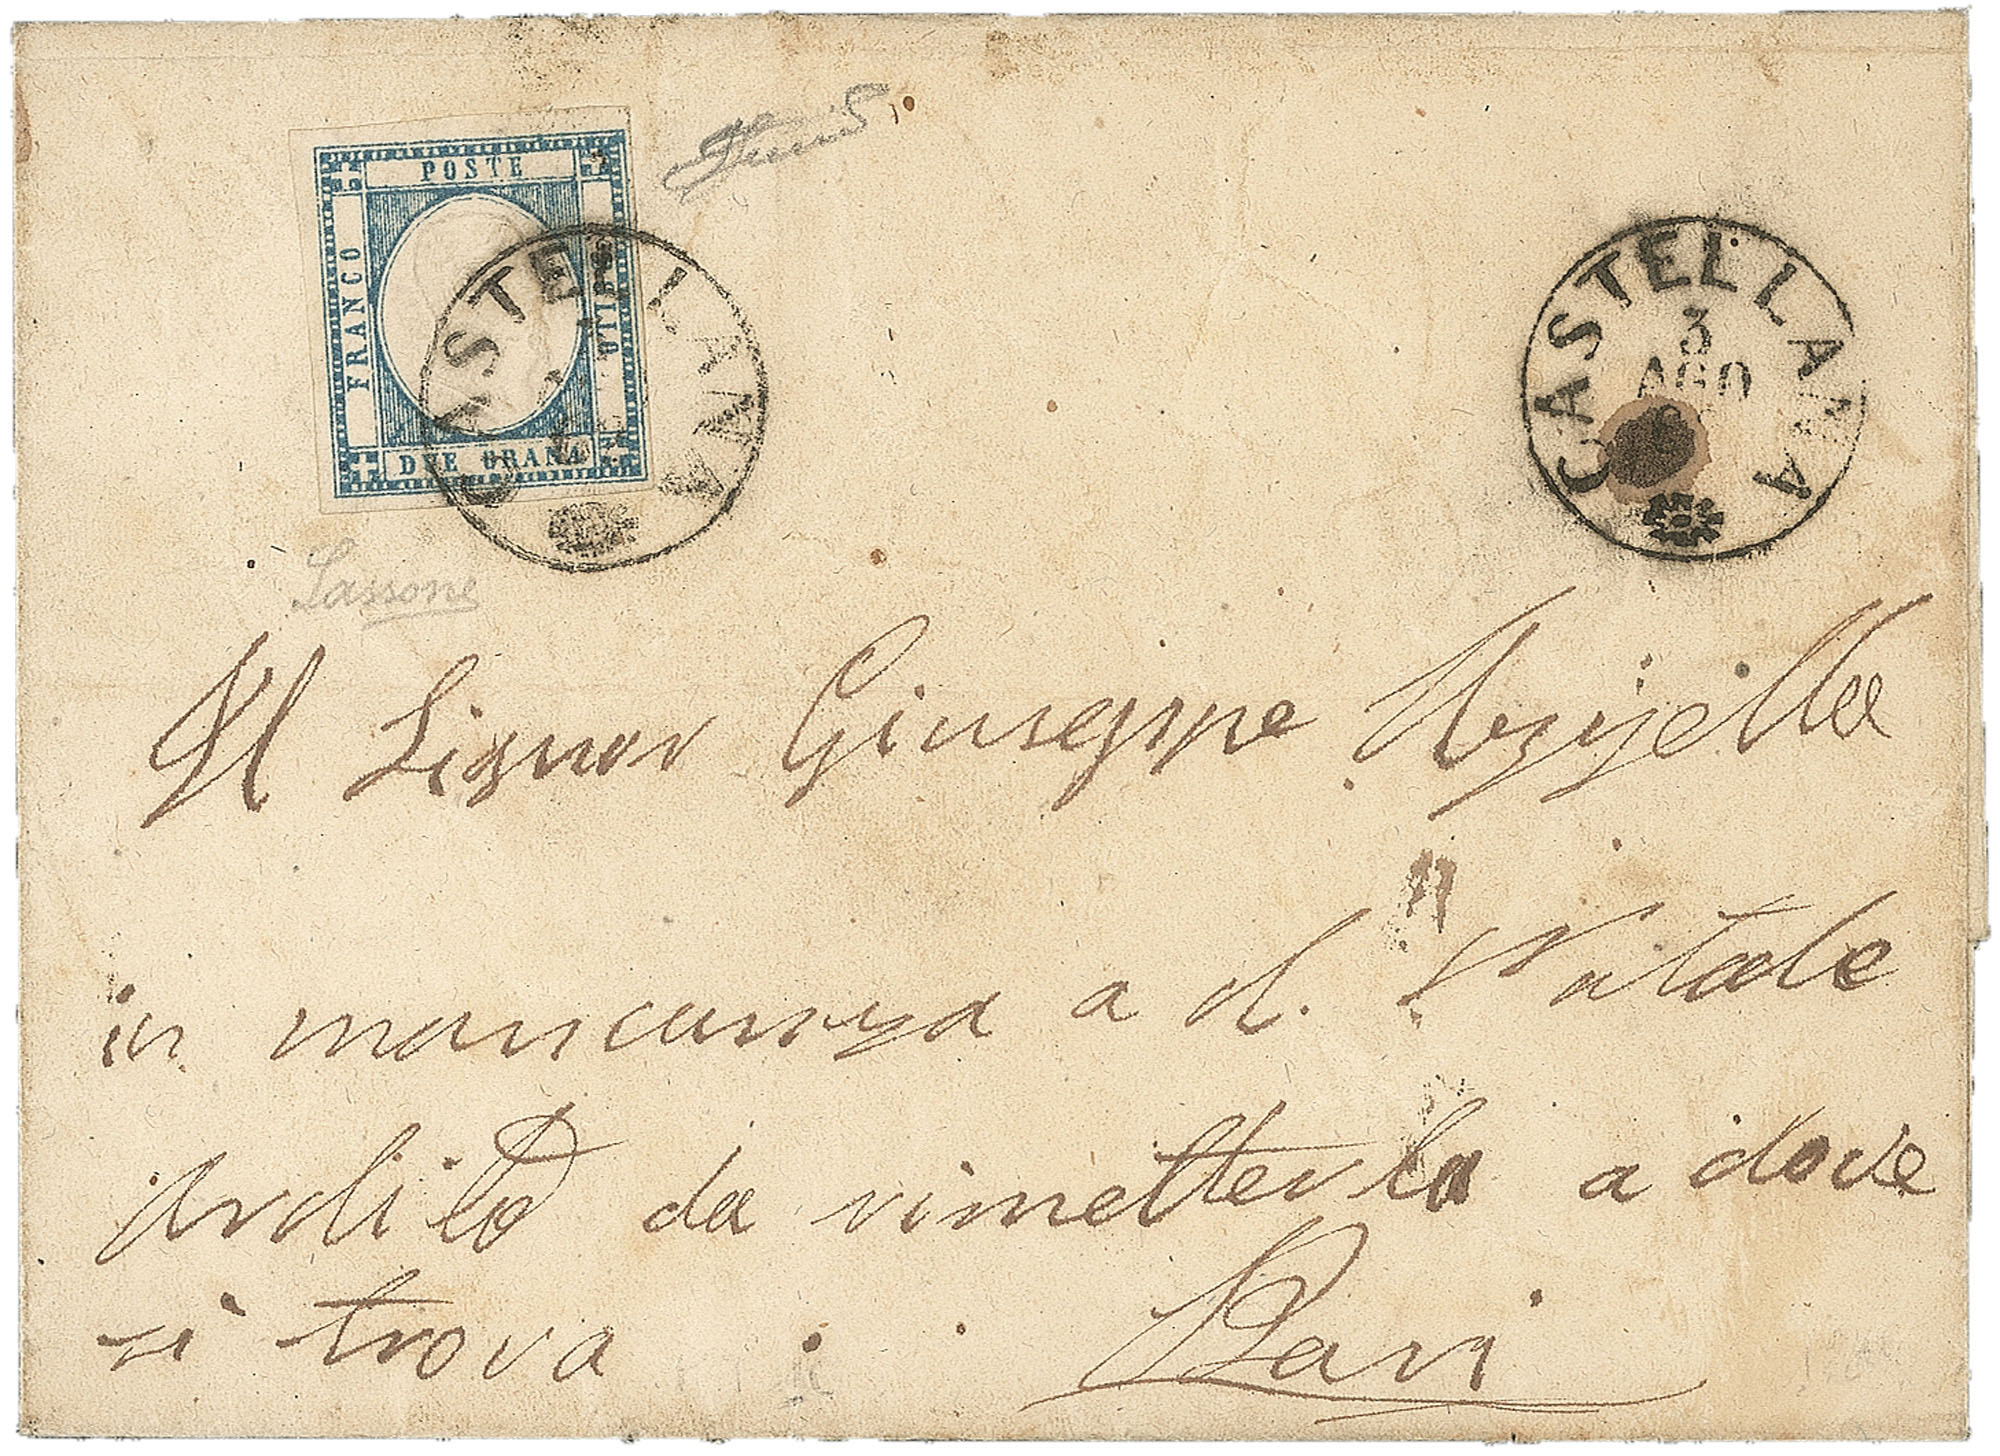 POSTE
FRANCO
BOLLO
DUE GRANA
CASTELLANA
CASTELLANA
3
AGO
Lassone
Al Signor Giuseppe
in mancanza a d. Natale
Ardito da rimetterla a dove
si trova Bari